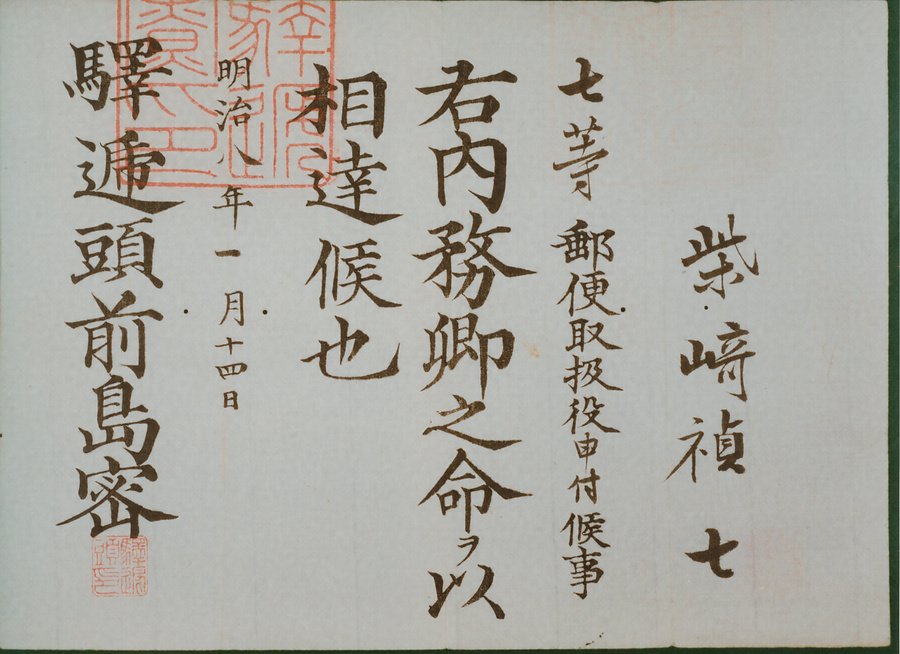 柴﨑禎七
七等郵便取扱役申付候事
右内務卿之命ヲ以
相達候也
明治八年一月十四日
驛遞頭前島密